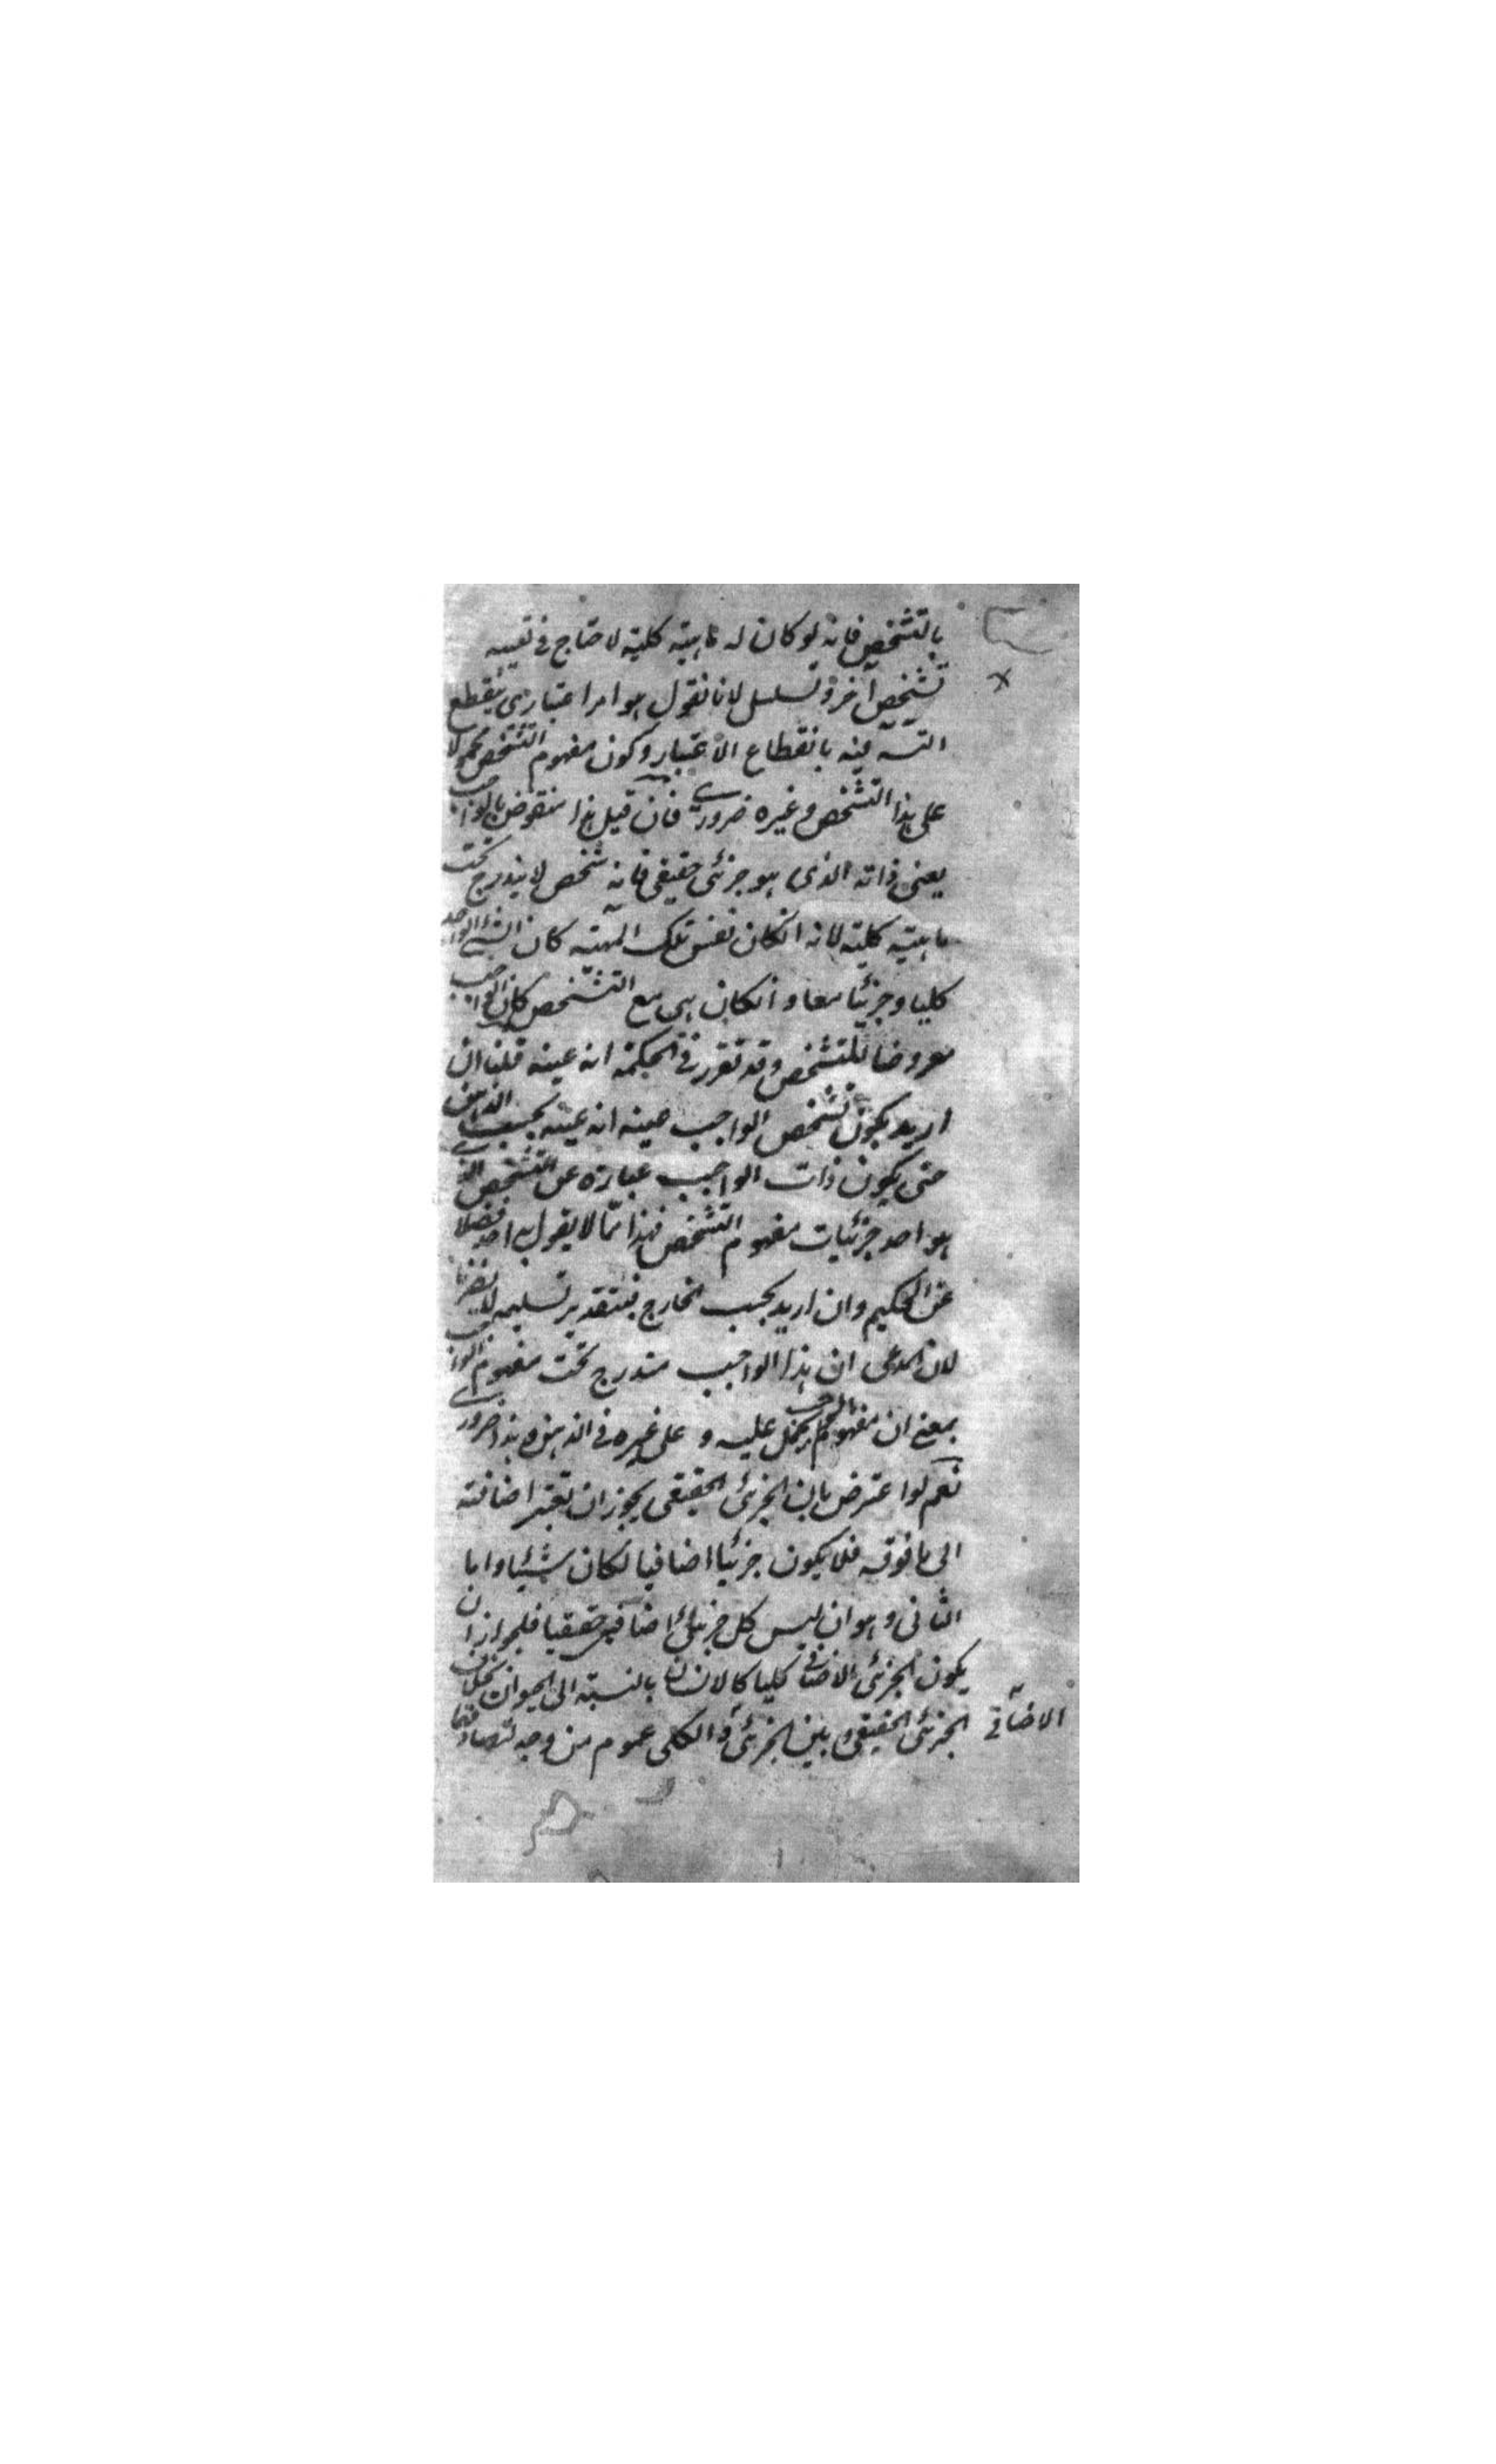 بالتشخص فانه لو كان له ماهية كلية لاحتاج في تعينه
تشخص آخر وتسلسل لانا نقول هو امر اعتباري ينقطع
التسه فيه بانقطاع الاعتبار وكون مفهوم التشخص محمولا
على هذا التشخص وغيره ضروري فان قيل هذا منقوض بالواجب
يعني ذاته الذي هو جزئي حقيقي فانه شخص لا يندرج تحت
ماهية كلية لانه انكان نفس تلك المهية كان الشئ الواحد
كليا وجزئيا معا وانكان هي مع التشخص كان الواجب
معروضا للتشخص وقد تقرر في الحكمة انه عينه قلنا ان
اريد بكون تشخص الواجب عينه انه عينه بحسب الذهن
حتى يكون ذات الواجب عبارة عن التشخص الذي
هو احد جزئيات مفهوم التشخص فهذا مما لا يقول به احد فضلا
عن الحكيم وان اريد بحسب الخارج فبتقدير تسليمه لا يضرنا
لان المدعى ان هذا الواجب مندرج تحت مفهوم الواجب
بمعنى ان مفهوم الواجب يحمل عليه و على غيره في الذهن وهذا ضروري
نعم لو اعترض بان الجزئي الحقيقي يجوز ان لا تعتبر اضافته
الى ما فوقه فلا يكون جزئيا اضافيا لكان شيئا واما
الثاني وهو ان ليس كل جزئي اضافي حقيقيا فلجواز ان
يكون الجزئي الاضافي كليا كالانسان بالنسبة الى الحيوان بخلاف
الجزئي الحقيقي وبين الجزئي والكلي عموم من وجه لتصادقهما
الاضافي